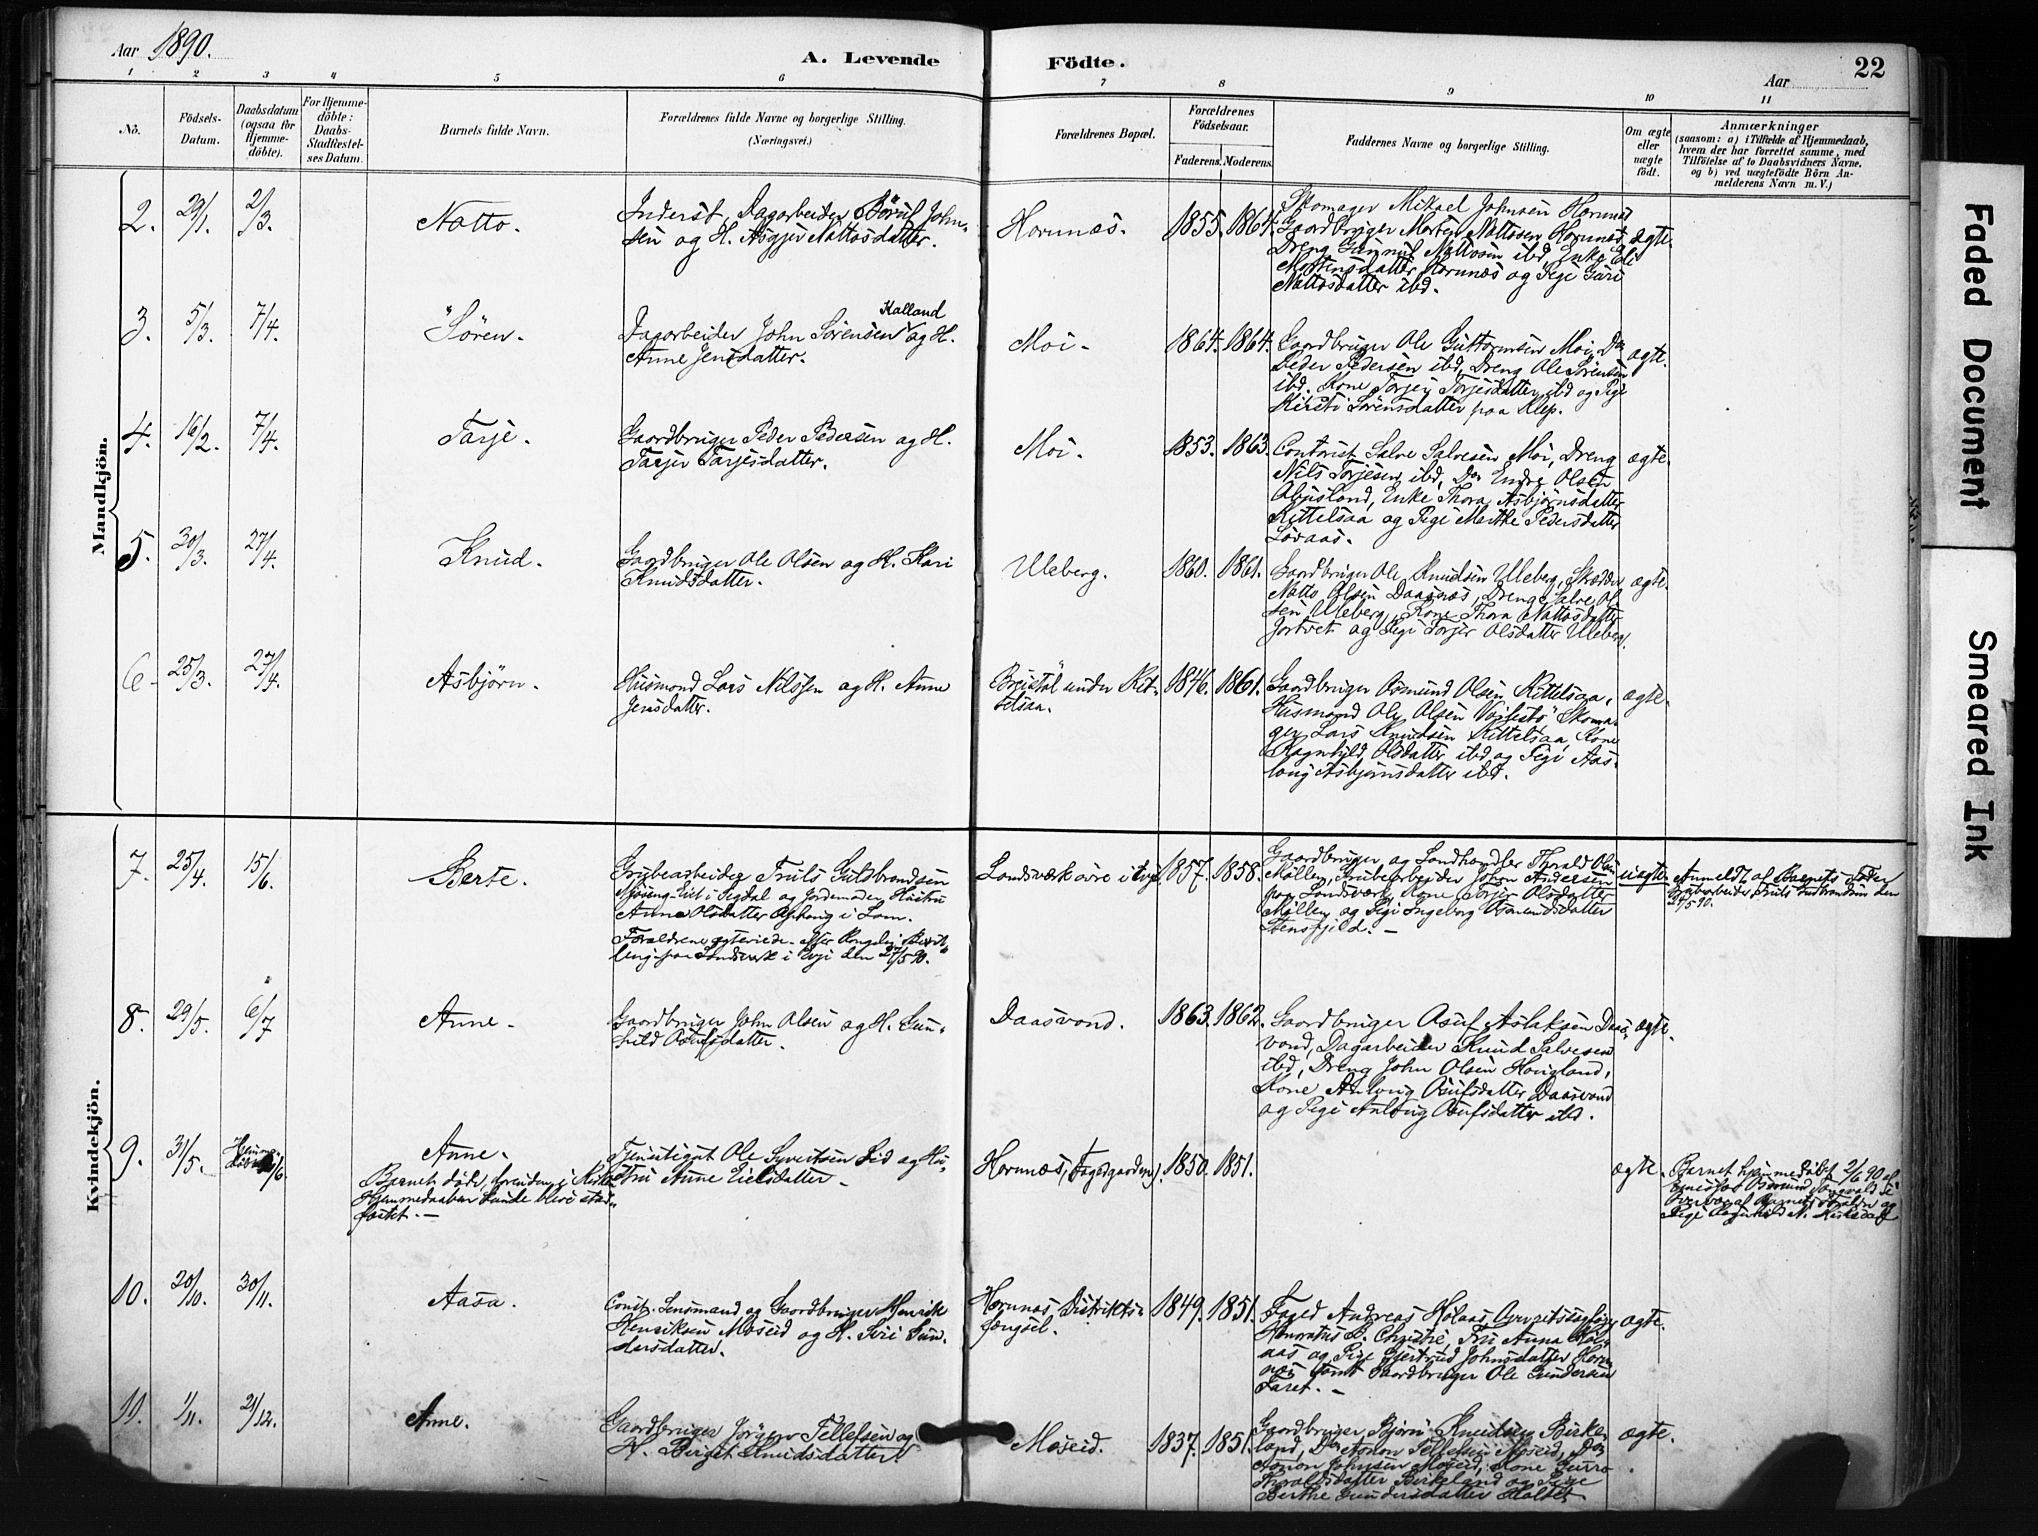 Aar 1890.
A. Levende
Födte.
Aar
22
1 2 3 4 5 6 7 8 9 10 11
No.
Födsels-
Datum.
Daabsdatum
(ogsaa for
Hjemme-
döbte).
For Hjemme-
döbte:
Daabs-
Stadfæstel-
ses Datum.
Barnets fulde Navn.
Forældrenes fulde Navne og borgerlige Stilling.
(Næringsvei.)
Forældrenes Bopæl.
Forældrenes
Födselsaar.
Faderens. Moderens.
Faddernes Navne og borgerlige Stilling.
Om ægte
eller
uægte
födt.
Anmærkninger
(saasom: a) i Tilfælde af Hjemmedaab,
hvem der har forrettet samme, med
Tilföielse af to Daabsvidners Navne.
og b) ved uægtefödte Börn An-
melderens Navn m. V.)
Mandkjön.
2. 29/1. 2/3. Natto.
Inderst, Dagarbeider John-
sen og H. Asgjer Nattosdatter.
Hornnæs. 1855. 1864.
Skomager Mikael Johnsen Hornnes
Gaardbruger Morten Nattosen Hornnæs
Dreng Gunnuf Nattosen ibd, Enke
Mortensdatter Hornnæs og Pige Guri
Nattosdatter ibd.
ægte.
3. 5/3. 7/4. Sören.
Kalland
Dagarbeider John Sörensen og H.
Anne Jensdatter.
Moi. 1864. 1864.
Gaardbruger Ole Guttormsen Moi, Do
Peder Pedersen ibd, Dreng Ole Sörensen
ibd. Kone Torjer Torjesdatter ibd og Pige
Kirsti Sörensdatter paa Klep.
ægte.
4. 16/2. 7/4. Tarje.
Gaardbruger Peder Pedersen og H.
Tarjer Tarjesdatter.
Moi. 1853. 1863.
Contorist Salve Salvesen Moi, Dreng
Nils Torjesen ibd, Do Endre Olsen
Abusland, Enke Thora Asbjörnsdatter
Kittelsaa og Pige Marthe Pedersdatter
Lövaas.
ægte.
5. 30/3. 27/4. Knud.
Gaardbruger Ole Olsen og H. Kari
Knudsdatter.
Uleberg. 1860. 1861.
Gaardbruger Ole Knudsen Uleberg, Skrædder
Natto Olsen Daasnes, Dreng Salve Ol-
sen Uleberg, Kone Thora Nattosdatter
Jortvet og Pige Torjer Olsdatter Uleberg.
ægte.
6. 25/3. 27/4. Asbjörn.
Husmand Lars Nilssen og H. Anne
Jensdatter.
Breistöl under Kit-
telsaa.
1846. 1861.
Gaardbruger Osmund Olsen Kittelsaa,
Husmand Ole Olsen Skoma-
ger Lars Knudsen Kittelsaa, Kone
Ragnhild Olsdatter ibd og Pige Aas-
loug Asbjörnsdatter ibd.
ægte.
Kvindekjön.
7. 25/4. 15/6. Berte.
Grubearbeider Truls Gulbrandsen
i Sigdal og Jordemoder Hustru
Anne Olsdatter i Lom.
Forældrene ægteviede efter Kongelig Bevil-
ling paa Landsværk i Evje den 27/5 90.
Landsværk övre i Evje. 1857. 1858.
Gaardbruger og Landhandler Thorald Olsen
Möllen, Grubearbeider Johan Andersen
paa Landsværk, Kone Torjer Olsdatter
Möllen og Pige Ingeborg Osmundsdatter
Stensfjeld.
uægte.
Anmeldt af Barnets Fader
Grubearbeider Truls Gulbrandsen den
5 90.
8. 29/5. 6/7 Anne.
Gaardbruger John Olsen og H. Gun-
hild Osufsdatter.
Daasvand. 1863. 1862.
Gaardbruger Osuf Aslaksen Daas-
vand, Dagarbeider Knud Salvesen
ibd, Dreng John Olsen Hougland,
Kone Anloug Osufsdatter Daasvand
og Pige Anloug Osufsdatter ibd.
ægte.
9. 31/5. Hjemme-
döbt 2/6.
Anne.
Barnet döde, förend i Kirken
Hjemmedaaben kunde blive stad-
fæstet.
Tjenestegut Ole Syvertsen Lid og Hu-
stru Anne Eielsdatter.
Hornnæs, (Fagergaarden). 1850. 1851.
ægte.
Barnet hjemmedöbt 2/6 90 af
10. 20/10. 30/11. Aasa.
Const. Lensmand og Gaardbruger Henrik
Henriksen Moseid og H. Siri Gun-
darsdatter.
Hornnæs Distrikts-
fængsel.
1849. 1851.
Foged Andreas Holaas,
Honoratus B. Christie, Fru Anna Hol-
aas og Pige Gjertrud Johnsdatter Horn-
næs samt Gaardbruger Ole Gundersen
Faret.
ægte.
11. 1/11. 21/12. Anne.
Gaardbruger Jörgen Tellefsen og
H. Birget Knudsdatter.
Moseid. 1837. 1851.
Gaardbruger Björn Knudsen Birke-
land, Do Aanon Tellefsen Moseid, Do
Aanon Johnsen Moseid, Kone Gurro
Thoraldsdatter Birkeland og Pige
Berthe Gundersdatter Holtet
ægte.
Faded Document
Smeared Ink